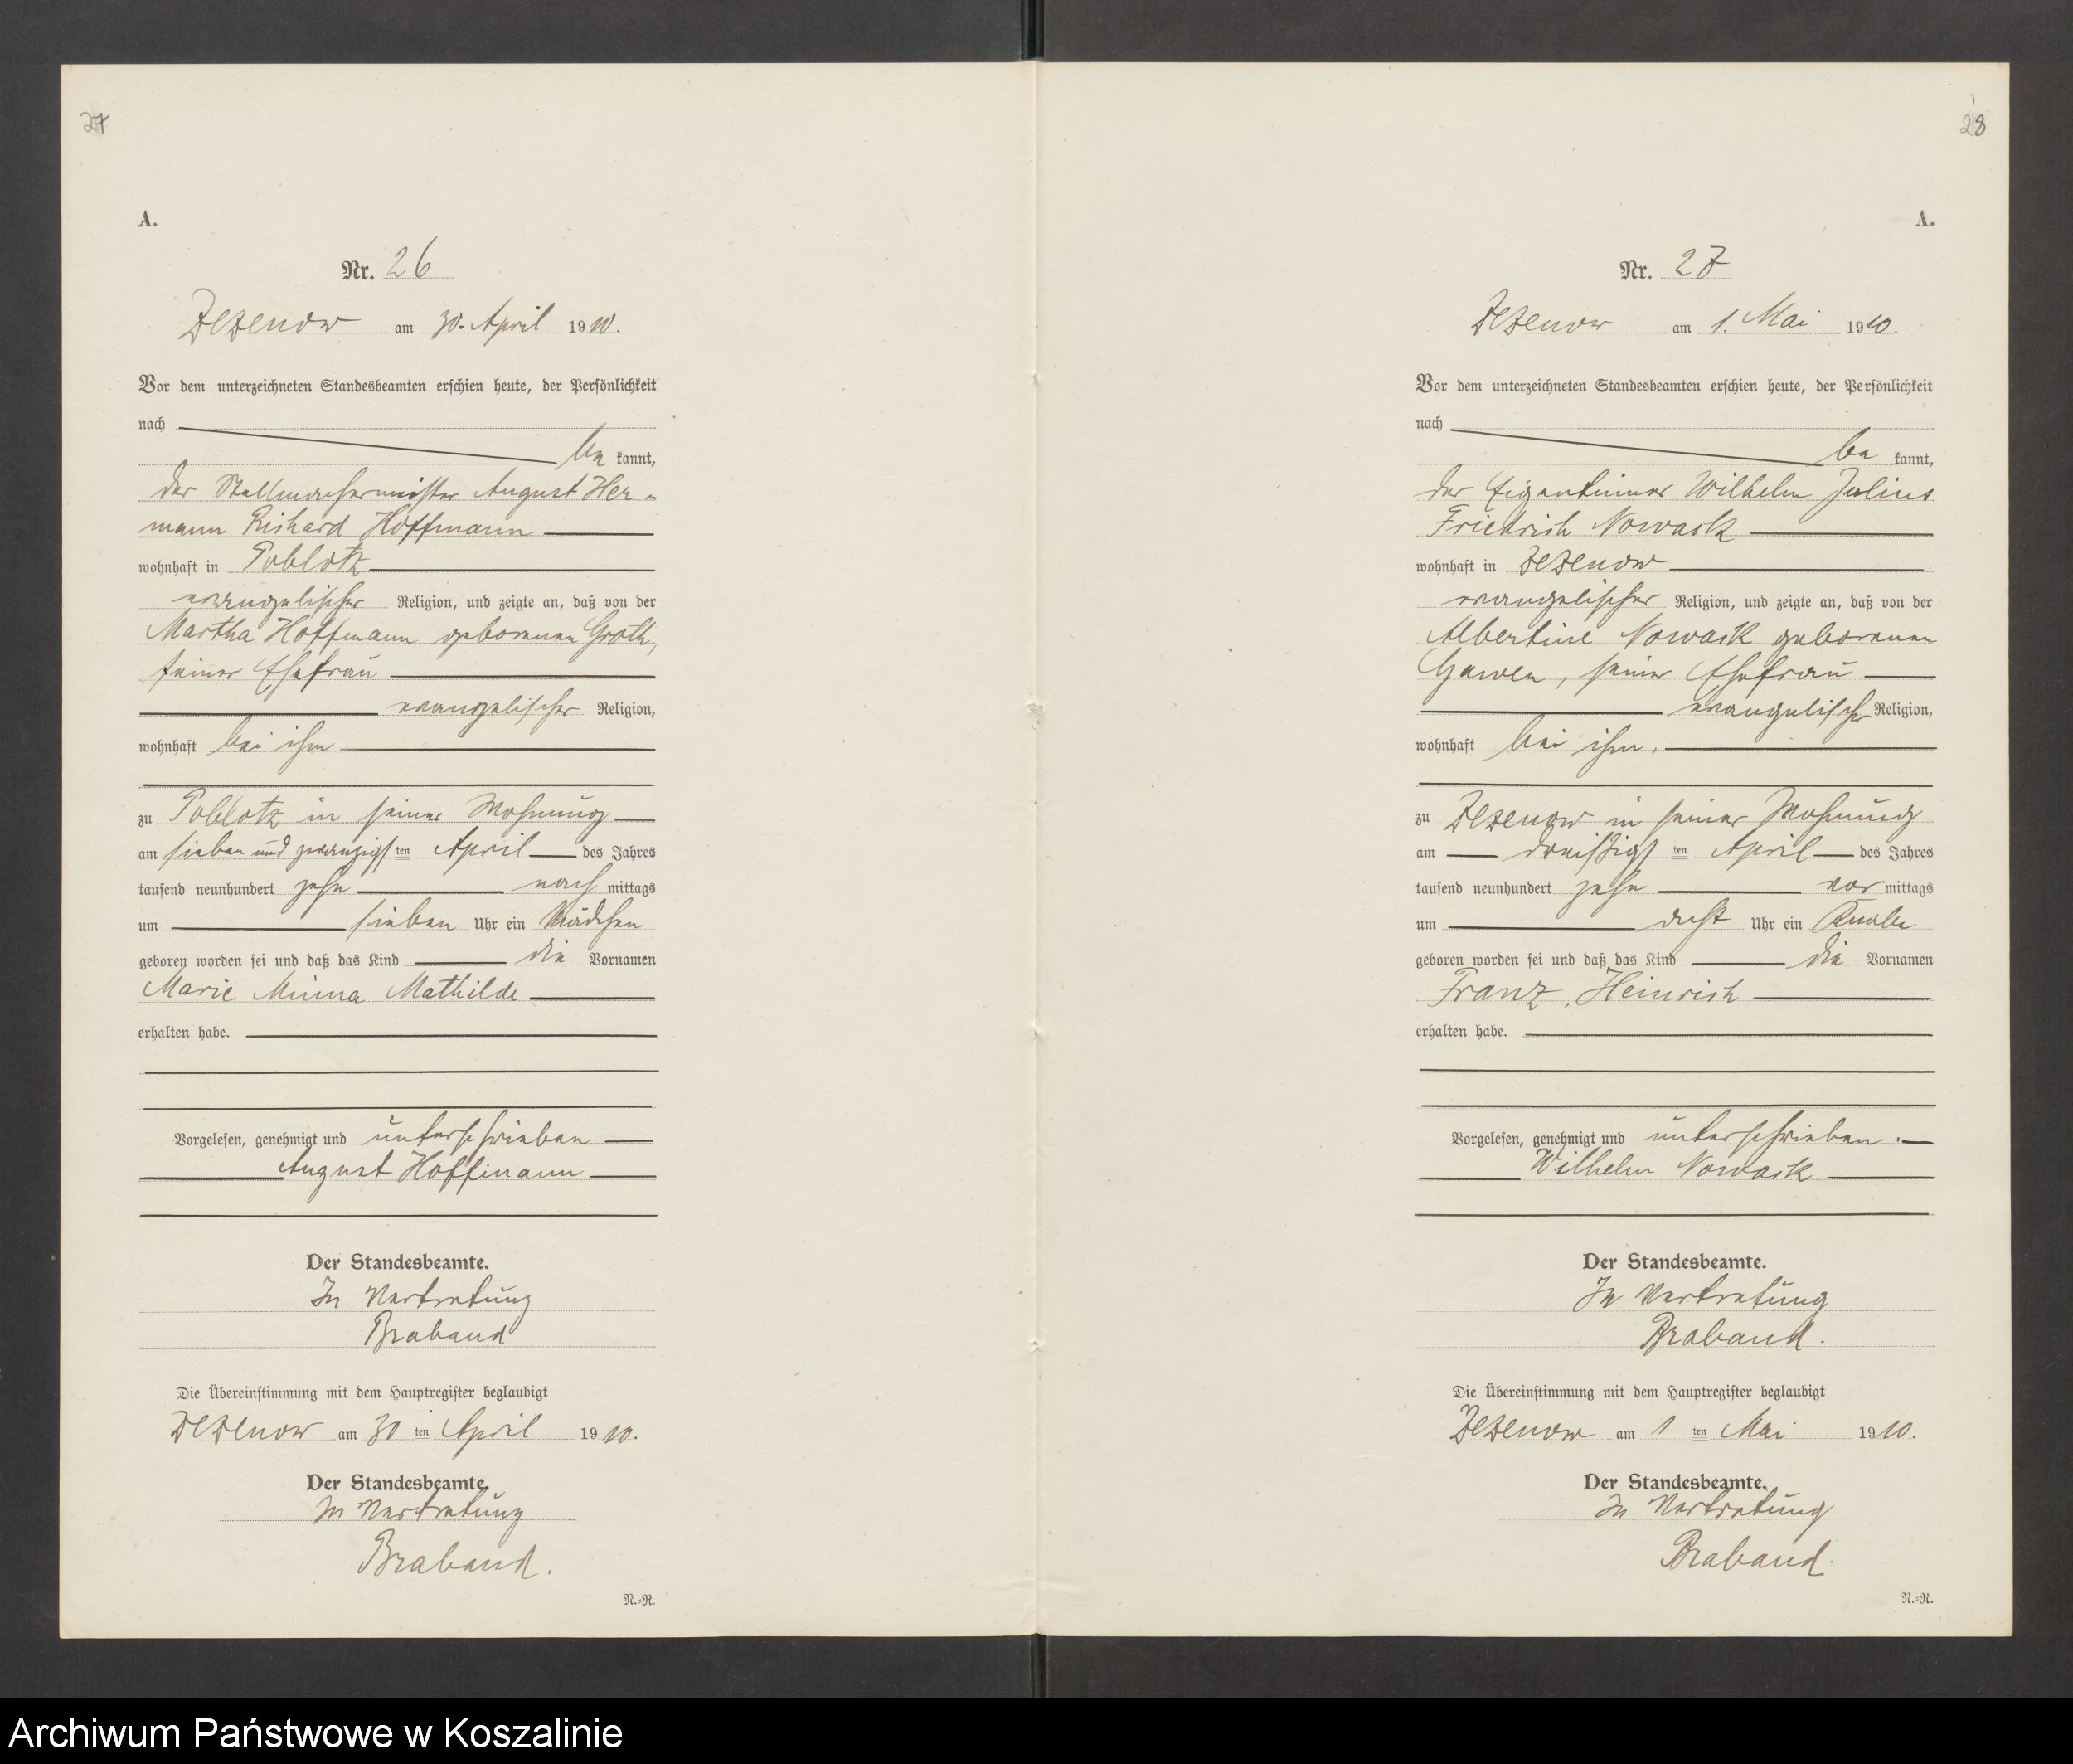 27
A.
Nr. 26
Zezenow am 30. April 1910.
Vor dem unterzeichneten Standesbeamten erschien heute, der Persönlichkeit
nach
be kannt,
der Stellmachermeister August Her-
mann Richard Hoffmann
wohnhaft in Poblotz
evangelischer Religion, und zeigte an, daß von der
Martha Hoffmann geborenen Groth,
seiner Ehefrau
evangelischer Religion,
wohnhaft bei ihm
zu Poblotz in seiner Wohnung
am sieben und zwanzigsten April des Jahres
tausend neunhundert zehn nach mittags
um sieben Uhr ein Mädchen
geboren worden sei und daß das Kind die Vornamen
Marie Minna Mathilde
erhalten habe.
Vorgelesen, genehmigt und unterschrieben
August Hoffmann
Der Standesbeamte.
In Vertretung
Braband
Die Übereinstimmung mit dem Hauptregister beglaubigt
Zezenow am 30 ten April 1910.
Der Standesbeamte.
In Vertretung
Braband.
N.=R.
28
A.
Nr. 27
Zezenow am 1. Mai 1910.
Vor dem unterzeichneten Standesbeamten erschien heute, der Persönlichkeit
nach
be kannt,
der Eigentümer Wilhelm Julius
Friedrich Nowack
wohnhaft in Zezenow
evangelischer Religion, und zeigte an, daß von der
Albertine Nowack geborenen
Gawen, seiner Ehefrau
evangelischer Religion,
wohnhaft bei ihm.
zu Zezenow in seiner Wohnung
am dreißigsten April des Jahres
tausend neunhundert zehn vor mittags
um acht Uhr ein Knabe
geboren worden sei und daß das Kind die Vornamen
Franz, Heinrich
erhalten habe.
Vorgelesen, genehmigt und unterschrieben.
Wilhelm Nowack
Der Standesbeamte.
In Vertretung
Braband.
Die Übereinstimmung mit dem Hauptregister beglaubigt
Zezenow am 1 ten Mai 1910.
Der Standesbeamte.
In Vertretung
Braband.
N.=R.
Archiwum Państwowe w Koszalinie